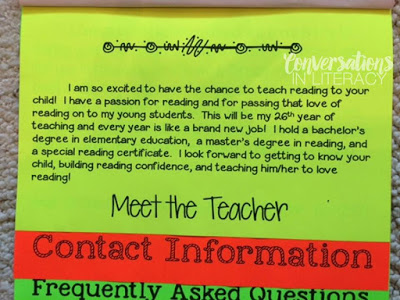 Conversations
IN LITERACY
I am so excited to have the chance to teach reading to your
child! I have a passion for reading and for passing that love of
reading on to my young students. This will be my 26th year of
teaching and every year is like a brand new job! I hold a bachelor's
degree in elementary education, a master's degree in reading, and
a special reading certificate. I look forward to getting to know your
child, building reading confidence, and teaching him/her to love
reading!
Meet the Teacher
Contact Information
Frequently Asked Questions